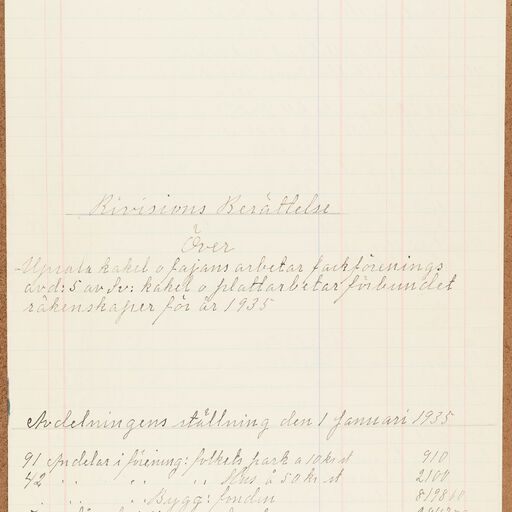 Rivisions Berättelse
Över
Upsala kakel o fajans arbetar fackförenings
avd: 5 av Sv: kakel o plattarbetar förbundet
räkenskaper för år 1935
Avdelningens ställning den 1 Januari 1935
91 Andelar i förening: folkets park a 10 kr st 910
42 " " " " Hus á 50 kr st 2100
" " " Bygg: fonden